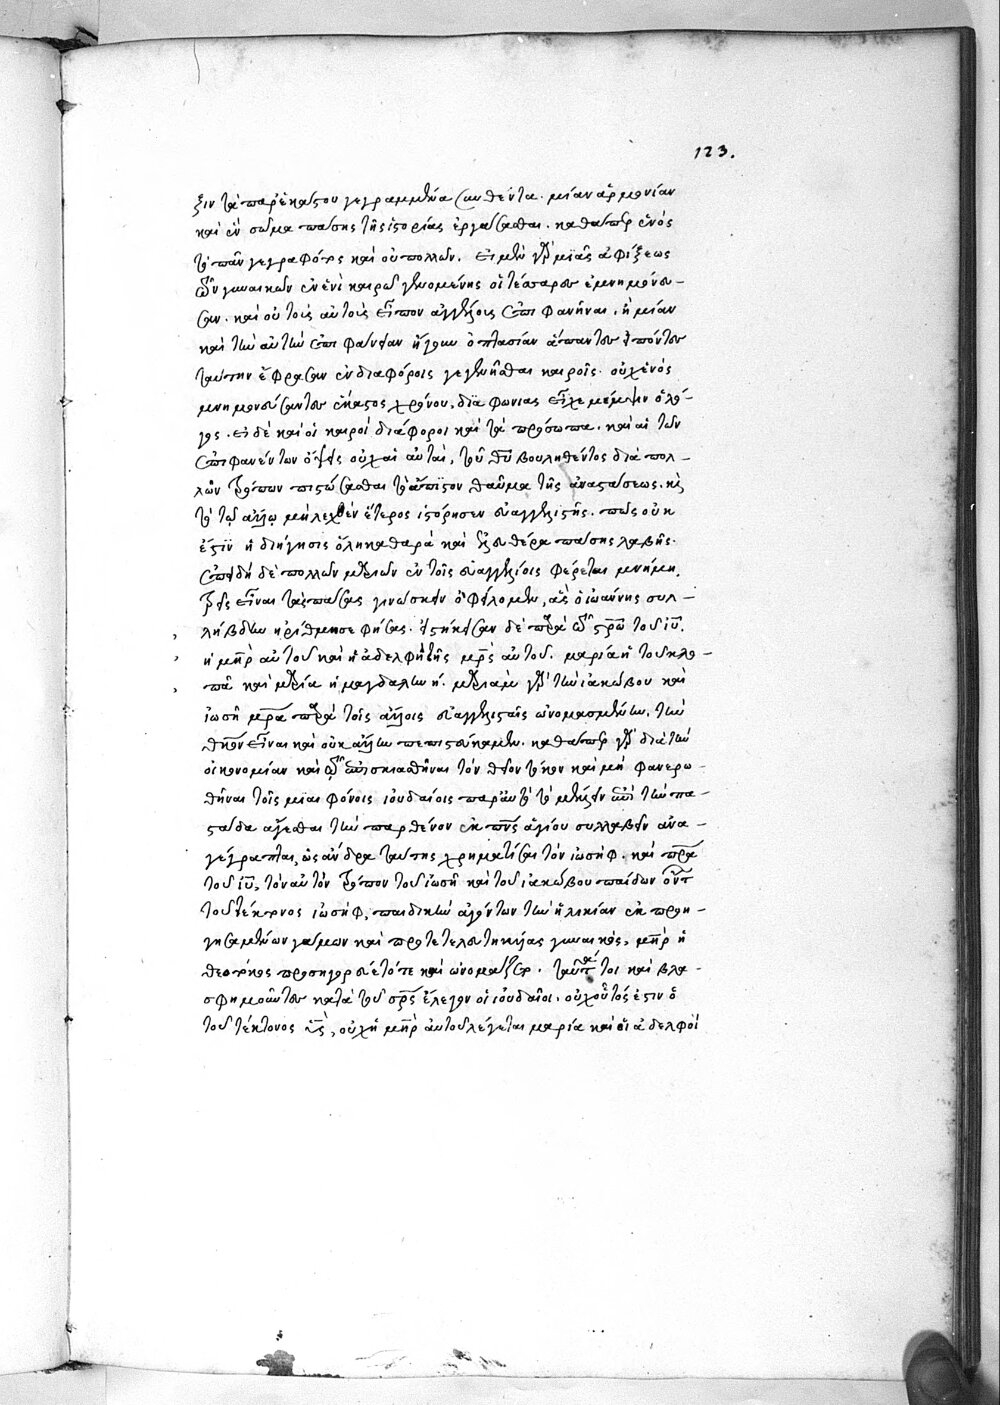 123.
ξιν τὰ παρ' ἑκάστου γεγραμμένα συνθέντα. μίαν ἁρμονίαν
καὶ ἓν σῶμα πάσης τῆς ἱστορίας ἐργάσασθαι. καθάπερ ἑνὸς
τὸ πᾶν γεγραφότος καὶ οὐ πολλῶν. εἰ μὲν γὰρ μιᾶς ἀφίξεως
τῶν γυναικῶν ἐν ἑνὶ καιρῷ γενομένης οἱ τέσσαρες ἐμνημόνευ-
σαν. καὶ οὐ τοῖς αὐτοῖς εἶπον ἀγγέλοις ἐπιφανῆναι. ἢ μίαν
καὶ τὴν αὐτὴν ἐπιφάνειαν ἤγουν ὀπτασίαν ἅπαντες εἰπόντες
ταύτην ἔφρασαν ἐν διαφόροις γεγενῆσθαι καιροῖς. οὐχ ἑνὸς
μνημονεύσαντες ἕκαστος χρόνου, διαφωνίας εἶχε μέμψιν ὁ λό-
γος. εἰ δὲ καὶ οἱ καιροὶ διάφοροι καὶ τὰ πρόσωπα. καὶ αἱ τῶν
ἐπιφανέντων ὄψεις οὐχ αἱ αὐταὶ, τοῦ θῦ βουληθέντος διὰ πολ-
λῶν τρόπων πιστώσασθαι τὸ ἄπιστον θαῦμα τῆς ἀναστάσεως. κὶ
τὸ τῷ ἄλλῳ μὴ λεχθὲν ἕτερος ἱστόρησεν εὐαγγελιστής. πῶς οὐκ
ἔστιν ἡ διήγησις ὅλη καθαρὰ καὶ ἐλευθέρα πάσης λαβῆς.
ἐπειδὴ δὲ πολλῶν μαριῶν ἐν τοῖς εὐαγγελίοις φέρεται μνήμη,
τρεῖς εἶναι τὰς πάσας γινώσκειν ὀφείλομεν, ἃς ὁ ἰωάννης συλ-
λήβδην ἠρίθμησε φήσας. εἱστήκεισαν δὲ παρὰ τῷ στρῷ τοῦ ἰῦ.
ἡ μηρ αὐτοῦ καὶ ἡ ἀδελφὴ τῆς μρς αὐτοῦ. μαρία ἡ τοῦ κλο-
πᾶ καὶ μαρία ἡ μαγδαληνή. μαριὰμ γὰρ τὴν ἰακώβου καὶ
ἰωσῆ μρα παρὰ τοῖς ἄλλοις εὐαγγελισταῖς ὠνομασμένην, τὴν
θκον εἶναι καὶ οὐκ ἄλλην πεπιστεύκαμεν. καθάπερ γὰρ διὰ τὴν
οἰκονομίαν καὶ τὸ ἐπισκιασθῆναι τὸν θεῖον τόκον καὶ μὴ φανερω-
θῆναι τοῖς μιαιφόνοις ἰουδαίοις παρ' αὐτὰ τὸ μέλλειν ἐπὶ τὴν πα-
στάδα ἄγεσθαι τὴν παρθένον ἐκ πνς ἁγίου συλλαβεῖν ἀνα-
γέγραπται, ὡς ἄνδρα ταύτης χρηματίσαι τὸν ἰωσὴφ. καὶ πρα
τοῦ ἰῦ, τὸν αὐτὸν τρόπον τοῦ ἰωσῆ καὶ τοῦ ἰακώβου παίδων ὄντ
τοῦ τέκτονος ἰωσὴφ, παιδικὴν ἀγόντων τὴν ἡλικίαν ἐκ προη-
γησαμένων γάμων καὶ προτετελευτηκυίας γυναικὸς, μηρ ἡ
θεοτόκος προσηγορεύετό τε καὶ ὠνομάζετο. ταῦτά τοι καὶ βλα-
σφημοῦντες κατὰ τοῦ σρς ἔλεγον οἱ ἰουδαῖοι. οὐχ οὗτός ἐστιν ὁ
τοῦ τέκτονος ὑς, οὐχὶ μηρ αὐτοῦ λέγεται μαρία καὶ οἱ ἀδελφοὶ